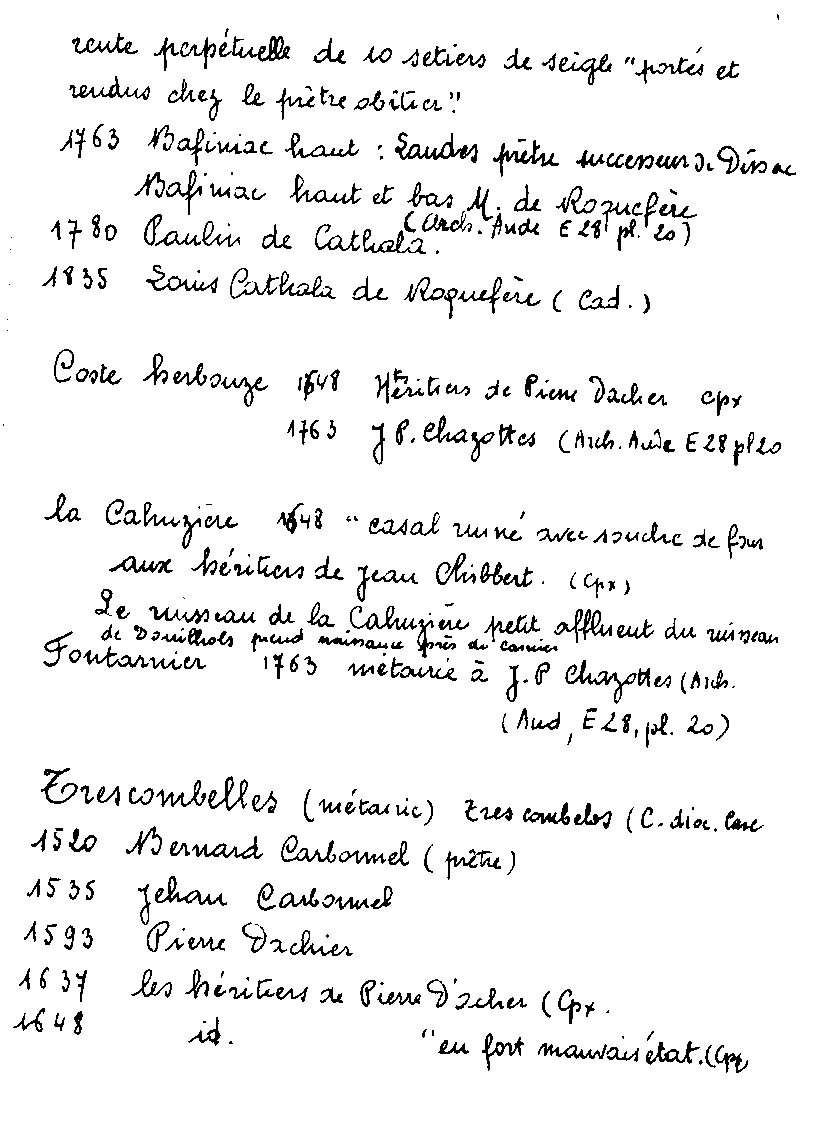 rente perpétuelle de 10 setiers de seigle "portés et
rendus chez le prêtre obitier".
1763 Bafiniac haut : Landes prêtre successeur de Dissac
Bafiniac haut et bas M. de Roquefère
(Arch. Aude E 28 pl. 20)
1780 Paulin de Cathala.
1835 Louis Cathala de Roquefère ( Cad. )
Coste herbouze 1648 Héritiers de Pierre Dacher cpx
1763 J P. Chazottes (Arch. Aude E 28 pl 20
la Cahuzière 1648 " casal ruiné avec souche de four
aux héritiers de Jean Chibbert. (Cpx)
Le ruisseau de la Cahuzière petit affluent du ruisseau
de Douilhols prend naissance près de
Fontarnier 1763 métairie à J. P Chazottes (Arch.
(Aud, E 28, pl. 20)
Trescombelles (métairie) Tres combelos (C. dioc. Carc
1520 Bernard Carbonnel ( prêtre)
1535 Jehan Carbonnel
1593 Pierre Dachier
1637 les héritiers de Pierre D'acher (Cpx.
1648 id. "en fort mauvais état. (Cpx